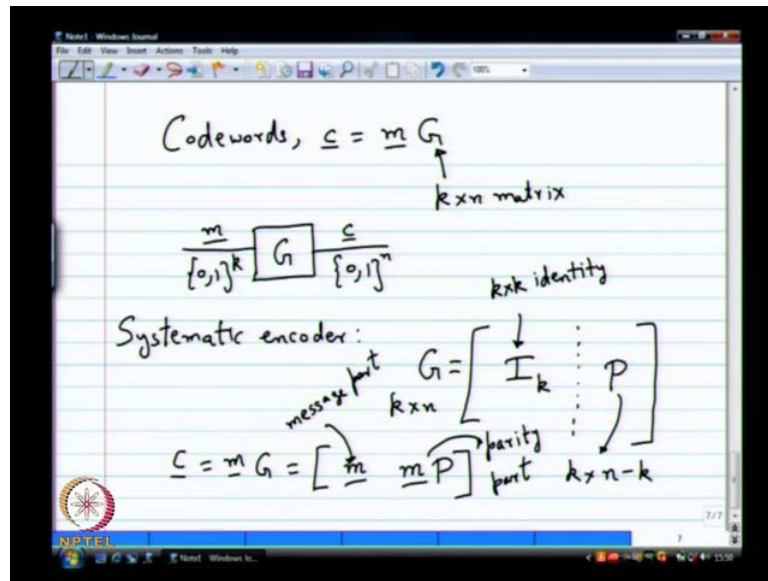 Note1 - Windows Journal
File Edit View Insert Actions Tools Help
100%
Codewords, c = m G
k×n matrix
m G c
{0,1}^k {0,1}^n
k×k identity
Systematic encoder:
G = [ I_k ⋮ P ]
k×n
message part
c = m G = [ m mP ] parity part k × n-k
7/7
7
NPTEL
Note1 - Windows Jo...
15:50